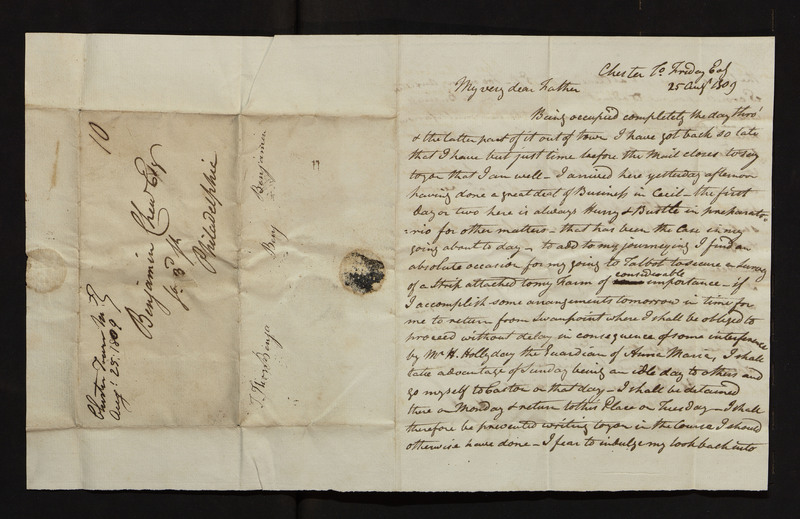 10
Benjamin Chew Esqr
So. 3d St
Philadelphia
Chester Town Md
Augt 25. 1809
Benjamin
Benj
Benja
Chester To. Friday Eg
25 Augt 1809
My very dear Father
Being occupied completely the day thro'
& the latter part of it out of town I have got back so late
that I have but just time before the Mail closes to say
to you that I am well - I arrived here yesterday afternoon
having done a great deal of Business in Cecil - the first
day or two here is always Hurry & Bustle in preparato-
=rio for other matters - that has been the Case in my
going about to day - to add to my journeying I find an
absolute occasion for my going to Talbot to secure a Survey
of a Strip attached to my Farm of considerable importance - if
I accomplish some arrangements tomorrow in time for
me to return from Swanpoint where I shall be obliged to
proceed without delay in consequence of some interference
by Mr H. Hollyday the Guardian of Anna Maria, I shall
take advantage of Sunday being an idle day to others and
go myself to Easton on that day - I shall be detained
there on Monday & return to this Place on Tuesday - I shall
therefore be prevented writing to you in the Course I should
otherwise have done - I fear to indulge my look back into